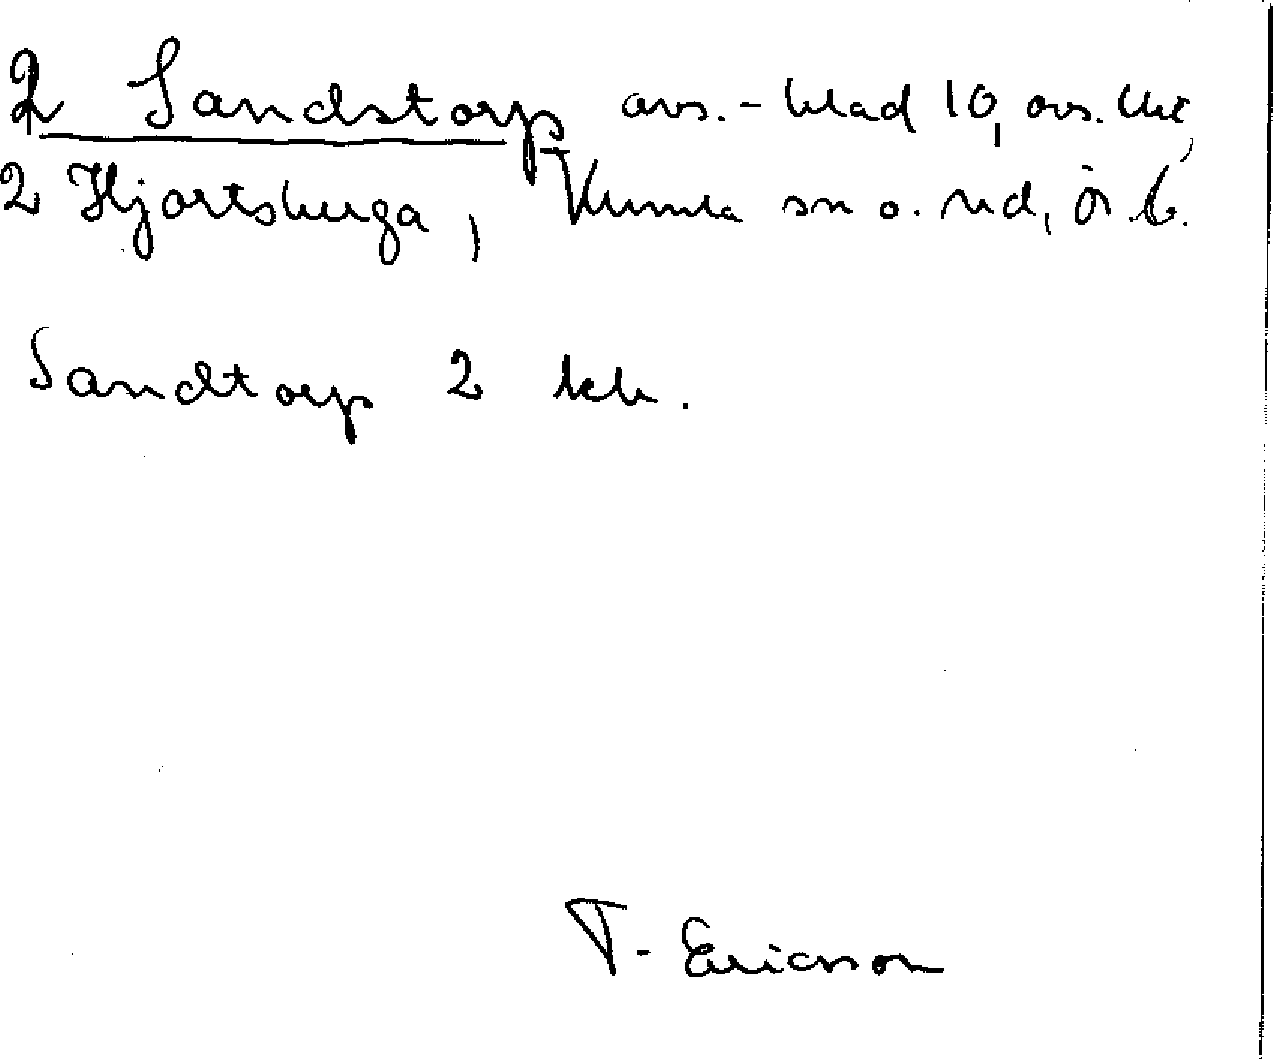 2 Sandstorp avs.-blad 10, avs.
2 Hjortsberga, Kumla sn o. hd, Ör. l.
Sandtorp 2 kh.
T. Ericsson